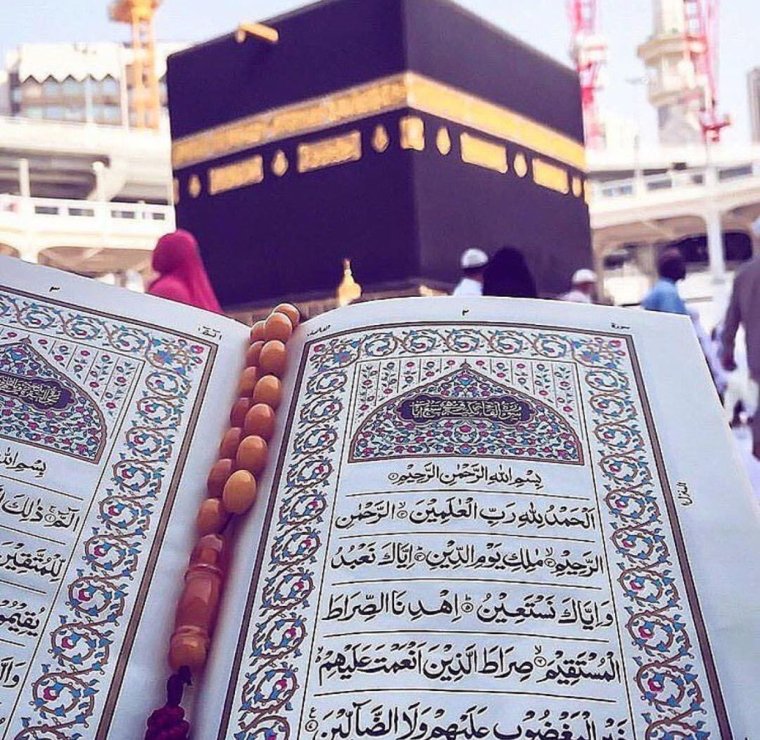 سورة
٢
الفاتحة
بِسْمِ اللهِ الرَّحْمٰنِ الرَّحِيْمِ
اَلْحَمْدُ لِلّٰهِ رَبِّ الْعٰلَمِيْنَ الرَّحْمٰنِ
الرَّحِيْمِ مٰلِكِ يَوْمِ الدِّيْنِ اِيَّاكَ نَعْبُدُ
وَاِيَّاكَ نَسْتَعِيْنُ اِهْدِنَا الصِّرَاطَ
الْمُسْتَقِيْمَ صِرَاطَ الَّذِيْنَ اَنْعَمْتَ عَلَيْهِمْ
غَيْرِ الْمَغْضُوْبِ عَلَيْهِمْ وَلَا الضَّآلِّيْنَ
٣
بِسْمِ الله
الٓمّٓ ذٰلِكَ
لِّلْمُتَّقِيْنَ